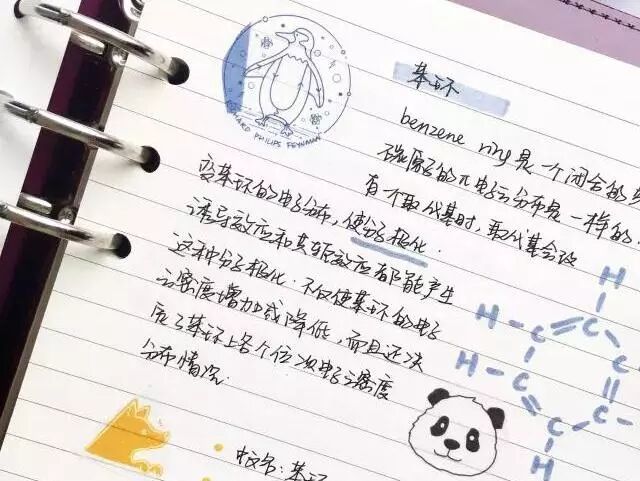 苯环
benzene ring是一个闭合的共
碳原子的π电子云分布是一样的.
有个取代基时, 取代基会改
变苯环的电子分布, 使分子极化.
诱导效应和共轭效应都能产生
这种分子极化. 不仅使苯环的电子
云密度增加或降低, 而且还决
定了苯环上各个位次电子云密度
分布情况.
中文名: 苯环
PHILIPS FEYNMAN
H
H - C = C
H - C C -
C C
H H